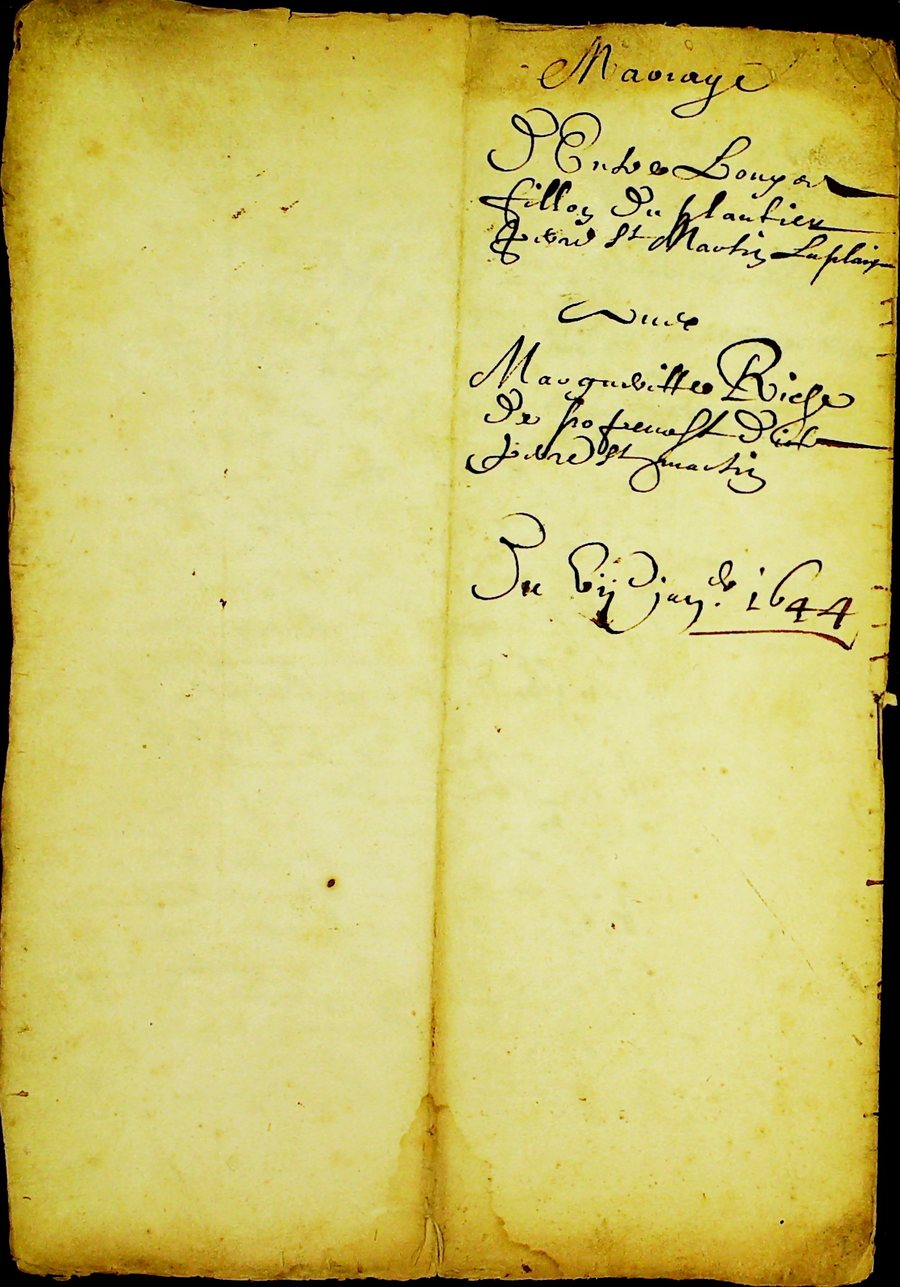 Mariage
D'Entre Louys
fillon du plantier
perre St Martin Laplaigne
Avec
Margueritte Riche
De
perre St martin
Du vij janer 1644